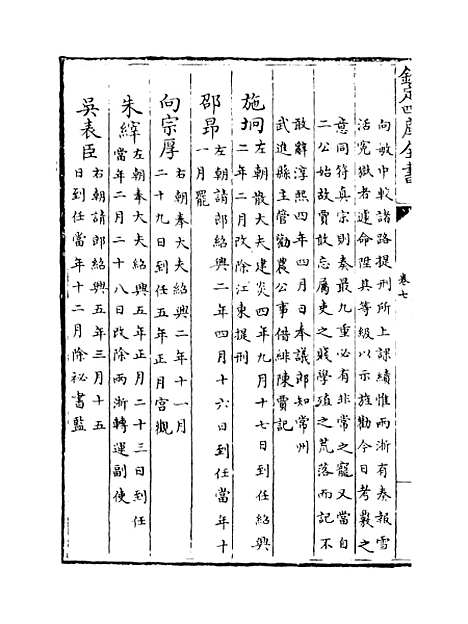 欽定四庫全書
卷七
向敏中較諸路提刑所上課績惟兩浙有奏報雪
活寃獄者遽命陞其等級以示旌勸今日考覈之
意同符真宗則奏最九重必有非常之寵又當自
二公始故賈敢忘屬吏之賤學殖之荒落而記不
敢辭淳熙四年四月日奉議郎知常州
武進縣主管勸農公事借緋陳賈記
施坰
左朝散大夫建炎四年九月十七日到任紹興
二年二月改除江東提刑
邵昂
左朝請郎紹興二年四月十六日到任當年十
一月罷
向宗厚
右朝奉大夫紹興二年十一月
二十九日到任五年正月宫觀
朱緈
左朝奉大夫紹興五年正月二十三日到任
當年二月二十八日改除兩浙轉運副使
吳表臣
右朝請郎紹興五年三月十五
日到任當年十二月除祕書監